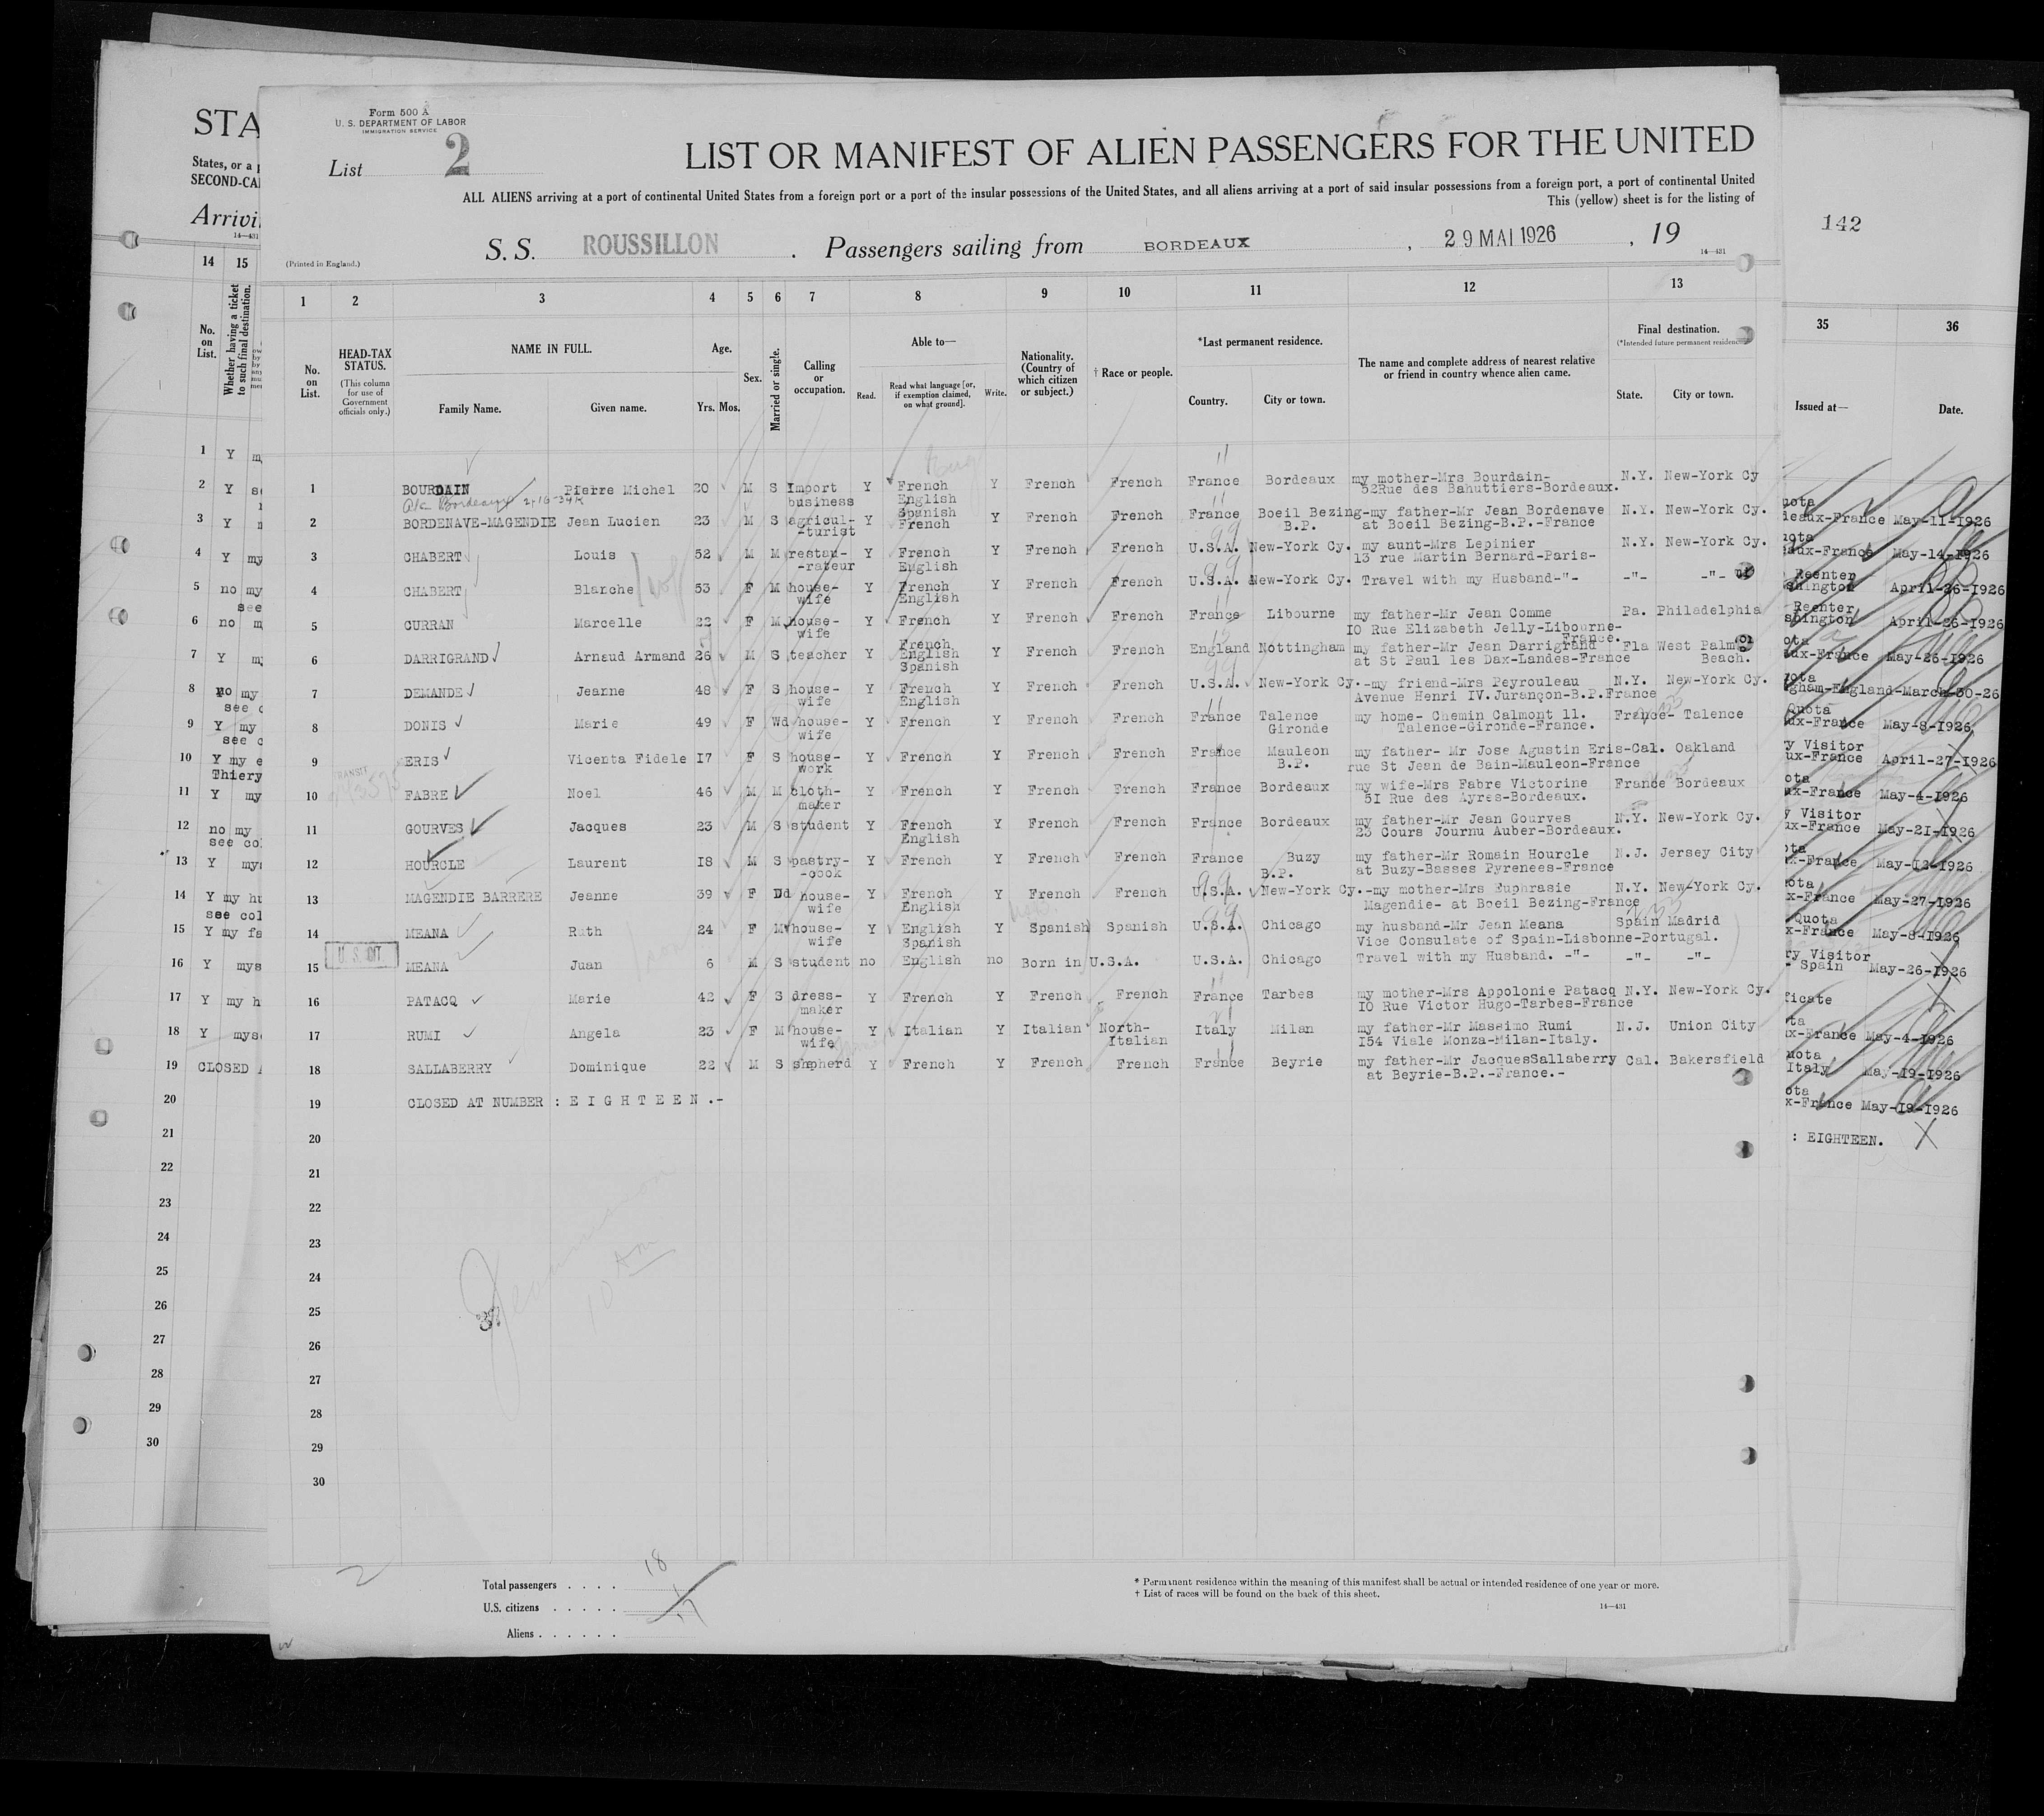 STA
States, or a p
SECOND-CA
Arrivi
14—431
Form 500 A
U. S. DEPARTMENT OF LABOR
IMMIGRATION SERVICE
List 2
LIST OR MANIFEST OF ALIEN PASSENGERS FOR THE UNITED
ALL ALIENS arriving at a port of continental United States from a foreign port or a port of the insular possessions of the United States, and all aliens arriving at a port of said insular possessions from a foreign port, a port of continental United
This (yellow) sheet is for the listing of
S. S. ROUSSILLON . Passengers sailing from BORDEAUX , 29 MAI 1926 , 19
(Printed in England.)
14—431
142
1 2 3 4 5 6 7 8 9 10 11 12 13
No. on List.
HEAD-TAX STATUS.
(This column for use of Government officials only.)
NAME IN FULL.
Family Name. Given name.
Age.
Yrs. Mos.
Sex.
Married or single.
Calling or occupation.
Able to—
Read. Read what language [or, if exemption claimed, on what ground]. Write.
Nationality. (Country of which citizen or subject.)
† Race or people.
*Last permanent residence.
Country. City or town.
The name and complete address of nearest relative or friend in country whence alien came.
Final destination.
(*Intended future permanent residence.)
State. City or town.
1 BOURDAIN Pierre Michel 20 M S Import Y French Y French French France Bordeaux my mother-Mrs Bourdain- N.Y. New-York Cy
business English 52Rue des Bahuttiers-Bordeaux.
Spanish
2 BORDENAVE-MAGENDIE Jean Lucien 23 M S agricul- Y French Y French French France Boeil Bezing-my father-Mr Jean Bordenave N.Y. New-York Cy.
-turist B.P. at Boeil Bezing-B.P.-France
3 CHABERT Louis 52 M M restau- Y French Y French French U.S.A. New-York Cy. my aunt-Mrs Lepinier N.Y. New-York Cy.
-rateur English 13 rue Martin Bernard-Paris-
4 CHABERT Blanche 53 F M house- Y French Y French French U.S.A. New-York Cy. Travel with my Husband-"- -"- -"-
wife English
5 CURRAN Marcelle 22 F M house- Y French Y French French France Libourne my father-Mr Jean Comme Pa. Philadelphia
wife IO Rue Elizabeth Jelly-Libourne-
French France.
6 DARRIGRAND Arnaud Armand 26 M S teacher Y English Y French French England Nottingham my father-Mr Jean Darrigrand Fla West Palm
Spanish at St Paul les Dax-Landes-France Beach.
7 DEMANDE Jeanne 48 F S house- Y French Y French French U.S.A. New-York Cy.-my friend-Mrs Peyrouleau N.Y. New-York Cy.
wife English Avenue Henri IV.Jurançon-B.P.France
8 DONIS Marie 49 F Wd house- Y French Y French French France Talence my home- Chemin Calmont 11. France- Talence
wife Gironde Talence-Gironde-France.
9 ERIS Vicenta Fidele I7 F S house- Y French Y French French France Mauleon my father- Mr Jose Agustin Eris-Cal. Oakland
work B.P. rue St Jean de Bain-Mauleon-France
TRANSIT
10 FABRE Noel 46 M M cloth- Y French Y French French France Bordeaux my wife-Mrs Fabre Victorine France Bordeaux
maker 5I Rue des Ayres-Bordeaux.
11 GOURVES Jacques 23 M S student Y French Y French French France Bordeaux my father-Mr Jean Gourves N.Y. New-York Cy.
English 23 Cours Journu Auber-Bordeaux.
12 HOURCLE Laurent I8 M S pastry- Y French Y French French France Buzy my father-Mr Romain Hourcle N.J. Jersey City
-cook B.P. at Buzy-Basses Pyrenees-France
13 MAGENDIE BARRERE Jeanne 39 F Dd house- Y French Y French French U.S.A. New-York Cy.-my mother-Mrs Euphrasie N.Y. New-York Cy.
wife English Magendie- at Boeil Bezing-France
14 MEANA Ruth 24 F M house- Y English Y Spanish Spanish U.S.A. Chicago my husband-Mr Jean Meana Spain Madrid
wife Spanish Vice Consulate of Spain-Lisbonne-Portugal.
U. S. CIT
15 MEANA Juan 6 M S student no English no Born in U.S.A. U.S.A. Chicago Travel with my Husband. -"- -"- -"-
16 PATACQ Marie 42 F S dress- Y French Y French French France Tarbes my mother-Mrs Appolonie Patacq N.Y. New-York Cy.
maker IO Rue Victor Hugo-Tarbes-France
17 RUMI Angela 23 F M house- Y Italian Y Italian North- Italy Milan my father-Mr Massimo Rumi N.J. Union City
wife Italian I54 Viale Monza-Milan-Italy.
18 SALLABERRY Dominique 22 M S shpherd Y French Y French French France Beyrie my father-Mr JacquesSallaberry Cal. Bakersfield
at Beyrie-B.P.-France.-
19 CLOSED AT NUMBER : E I G H T E E N .-
20
21
22
23
24
25
26
27
28
29
30
10 am
Total passengers . . . . 18
U.S. citizens . . . . . 1
Aliens . . . . . . 17
* Permanent residence within the meaning of this manifest shall be actual or intended residence of one year or more.
† List of races will be found on the back of this sheet.
14—431
14 15
No. on List.
Whether having a ticket to such final destination.
1 Y m
2 Y s
3 Y
4 Y my
5 no my
see
6 no m
7 Y m
8 no my
see c
9 Y my
see c
10 Y my e
Thiery
11 Y my
12 no my
see co
13 Y mys
14 Y my hu
see col
15 Y my fa
16 Y mys
17 Y my h
18 Y myse
19 CLOSED A
20
21
22
23
24
25
26
27
28
29
30
35 36
Issued at— Date.
uota
deaux-France May-11-1926
uota
aux-France May-14-1926
Reenter
shington April-26-1926
Reenter
shington April-26-1926
ota
ux-France May-26-1926
uota
gham-England-March-30-26
Quota
ux-France May-8-1926
ry Visitor
ux-France April-27-1926
ota
ux-France May-4-1926
y Visitor
ux-France May-21-1926
ota
x-France May-12-1926
ota
x-France May-27-1926
Quota
x-France May-8-1926
ry Visitor
- Spain May-26-1926
ficate
ta
x-France May-4-1926
uota
Italy May-19-1926
ota
x-France May-19-1926
: EIGHTEEN.